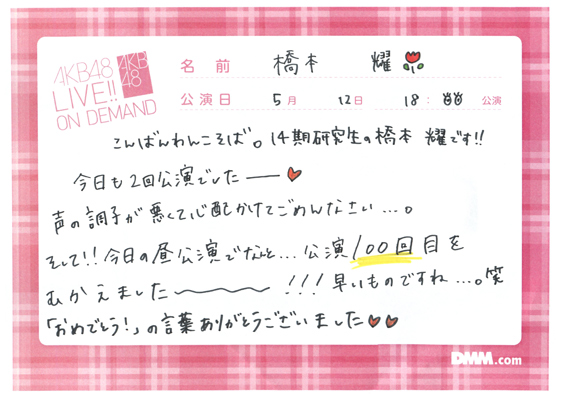 AKB48
LIVE!!
ON DEMAND
AKB
48
名前 橋本 耀
公演日 5月 12日 18:00 公演
こんばんわんこそば。14期研究生の橋本 耀です!!
今日も2回公演でした——♥
声の調子が悪くて心配かけてごめんなさい...。
そして!!今日の昼公演でなんと...公演100回目を
むかえました〜〜〜!!!早いものですね...。笑
「おめでとう!」の言葉ありがとうございました♥♥
DMM.com